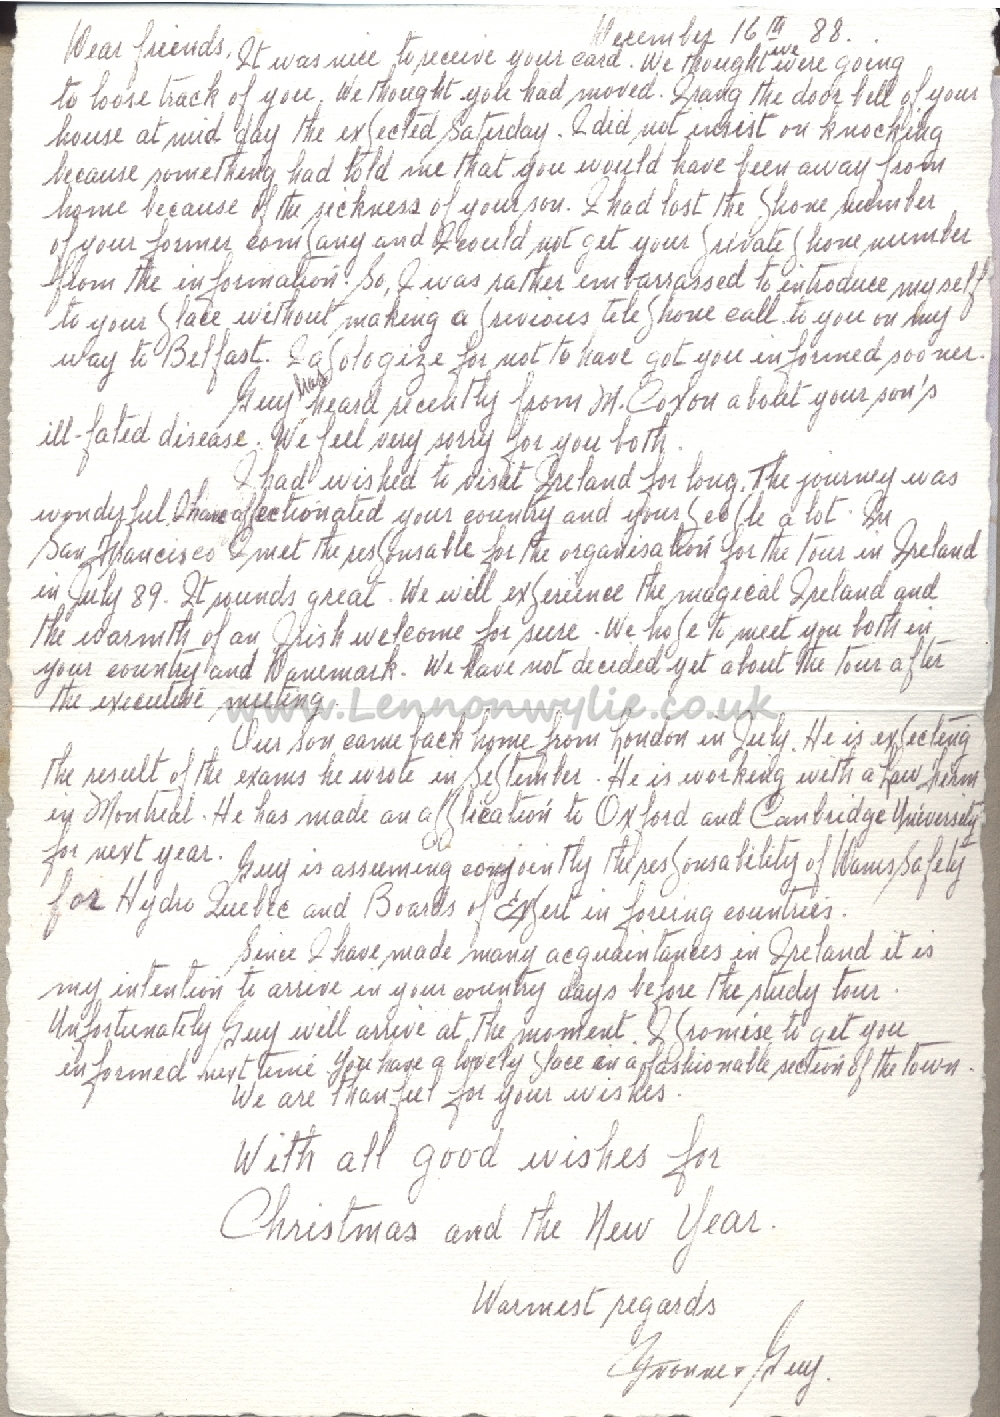 December 16th 88.
Dear friends, It was nice to receive your card. We thought we were going
to loose track of you. We thought you had moved. I rang the door bell of your
house at mid day the expected Saturday. I did not insist on knocking
because something had told me that you would have been away from
home because of the sickness of your son. I had lost the phone number
of your former company and I could not get your private phone number
from the information. So, I was rather embarrassed to introduce myself
to your place without making a privious telephone call to you on my
way to Belfast. I apologize for not to have got you informed sooner.
Guy has heard recently from M. Coxon about your son's
ill-fated disease. We feel very sorry for you both.
I had wished to visit Ireland for long. The journey was
wonderful, I have affectionated your country and your people a lot. In
San Francisco I met the responsable for the organisation for the tour in Ireland
in July 89. It sounds great. We will experience the magical Ireland and
the warmth of an Irish welcome for sure. We hope to meet you both in
your country and Danemark. We have not decided yet about the tour after
the executive meeting.
www.Lennonwylie.co.uk
Our son came back home from London in July. He is expecting
the result of the exams he wrote in September. He is working with a Law Firm
in Montreal. He has made an application to Oxford and Canbridge University
for next year. Guy is assuming conjointly the responsability of Dams Safety
for Hydro Quebec and Boards of Expert in foreing countries.
Since I have made many acquaintances in Ireland it is
my intention to arrive in your country days before the study tour.
Unfortunately Guy will arrive at the moment. I promise to get you
informed next time. You have a lovely place in a fashionable section of the town.
We are thanful for your wishes.
With all good wishes for
Christmas and the New Year.
Warmest regards
Yvonne + Guy.